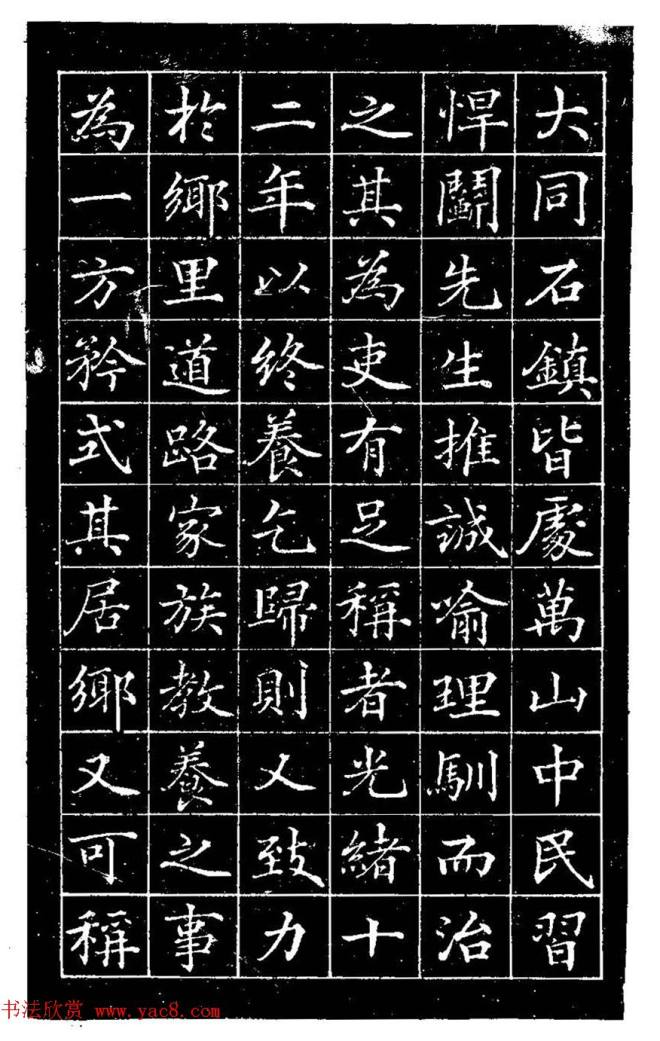 大同石鎮皆處萬山中民習
悍鬭先生推誠喻理馴而治
之其為吏有足稱者光緒十
二年以終養乞歸則又致力
於鄉里道路家族教養之事
為一方矜式其居鄉又可稱
书法欣赏 www.yac8.com